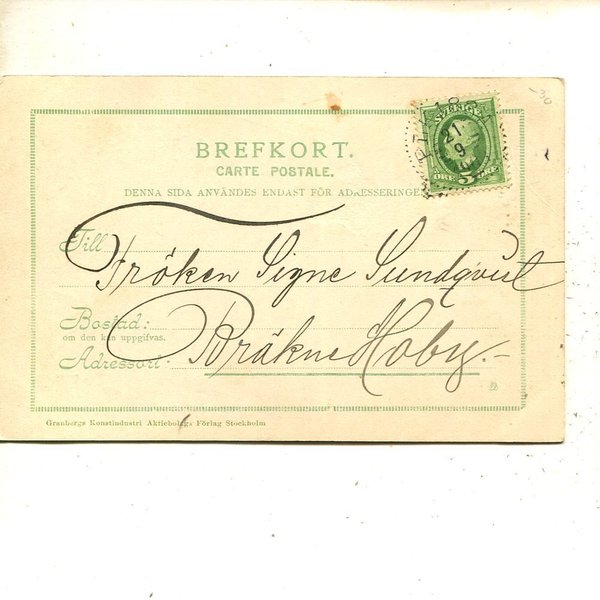 30
SVERIGE
21
9
5
ÖRE ÖRE
BREFKORT.
CARTE POSTALE.
DENNA SIDA ANVÄNDES ENDAST FÖR ADRESSERINGEN
Till
Fröken Signe Sundqvist
Bostad:
om den kan uppgifvas.
Adressort:
Bräkne Hoby.-
Granbergs Konstindustri Aktiebolags Förlag Stockholm